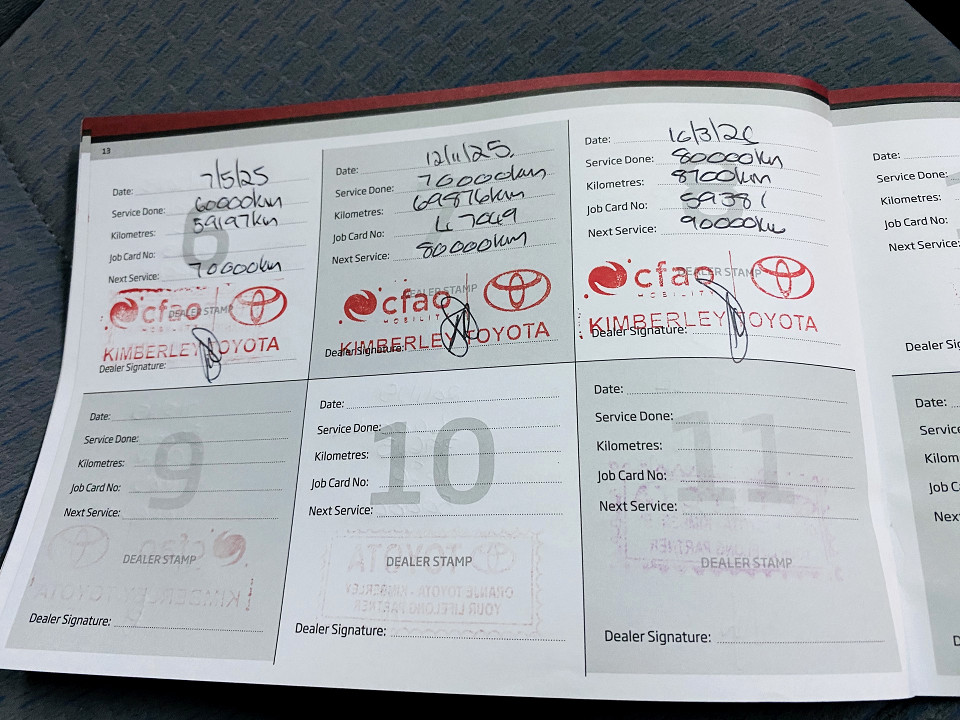 13
Date: 7/5/25
Service Done: 60000km
Kilometres: 59197km
Job Card No:
Next Service: 70000km
6
cfao
MOBILITY
DEALER STAMP
KIMBERLEY TOYOTA
Dealer Signature:
Date: 12/11/25.
Service Done: 70000km
Kilometres: 69876km
Job Card No:
Next Service: 80000km
cfao
MOBILITY
DEALER STAMP
KIMBERLEY TOYOTA
Dealer Signature:
Date: 16/3/26
Service Done: 80000km
Kilometres: 8700km
Job Card No: 59381
Next Service: 90000km
cfao
MOBILITY
DEALER STAMP
KIMBERLEY TOYOTA
Dealer Signature:
Date:
Service Done:
Kilometres:
Job Card No:
Next Service:
Dealer
Date:
Service Done:
Kilometres:
Job Card No:
Next Service:
9
DEALER STAMP
Dealer Signature:
Date:
Service Done:
Kilometres:
Job Card No:
Next Service:
10
DEALER STAMP
Dealer Signature:
Date:
Service Done:
Kilometres:
Job Card No:
Next Service:
11
DEALER STAMP
Dealer Signature:
Date:
Service
Kilom
Job C
Next
D